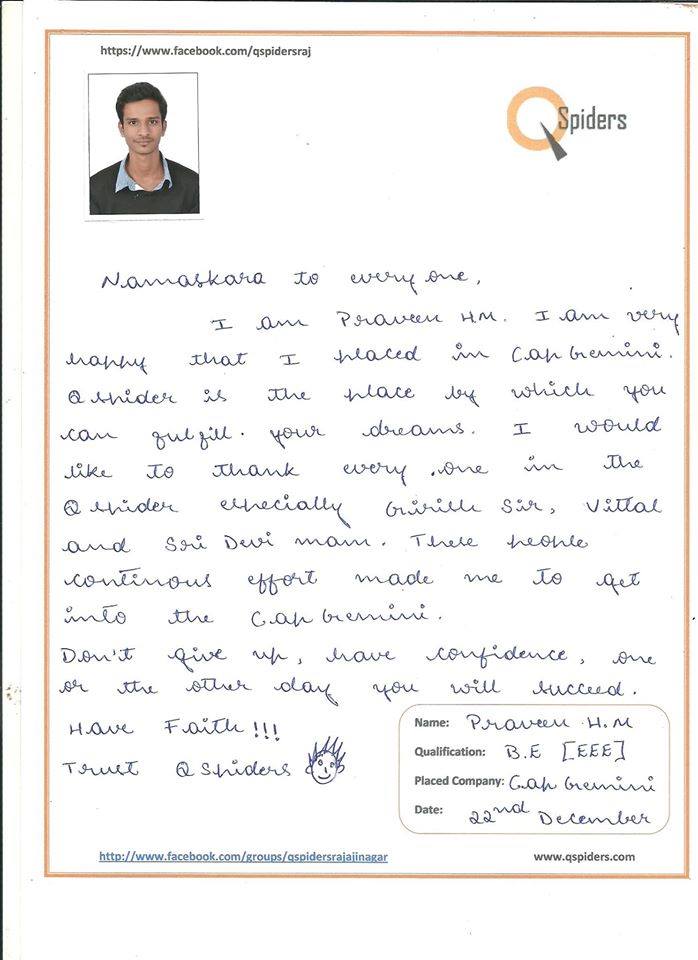 https://www.facebook.com/qspidersraj
QSpiders
Namaskara to every one,
I am Praveen H.M. I am very
happy that I placed in Cap Gemini.
Q spider is the place by which you
can fulfill. your dreams. I would
like to thank every one in the
Q spider especially Girish Sir, Vittal
and Sri Devi mam. These people
continous effort made me to get
into the Cap Gemini.
Don't give up, have confidence, one
or the other day you will succeed.
Have Faith!!!
Trust Q Spiders
Name: Praveen H.M
Qualification: B.E [EEE]
Placed Company: Cap Gemini
Date: 22nd December
http://www.facebook.com/groups/qspidersrajajinagar
www.qspiders.com